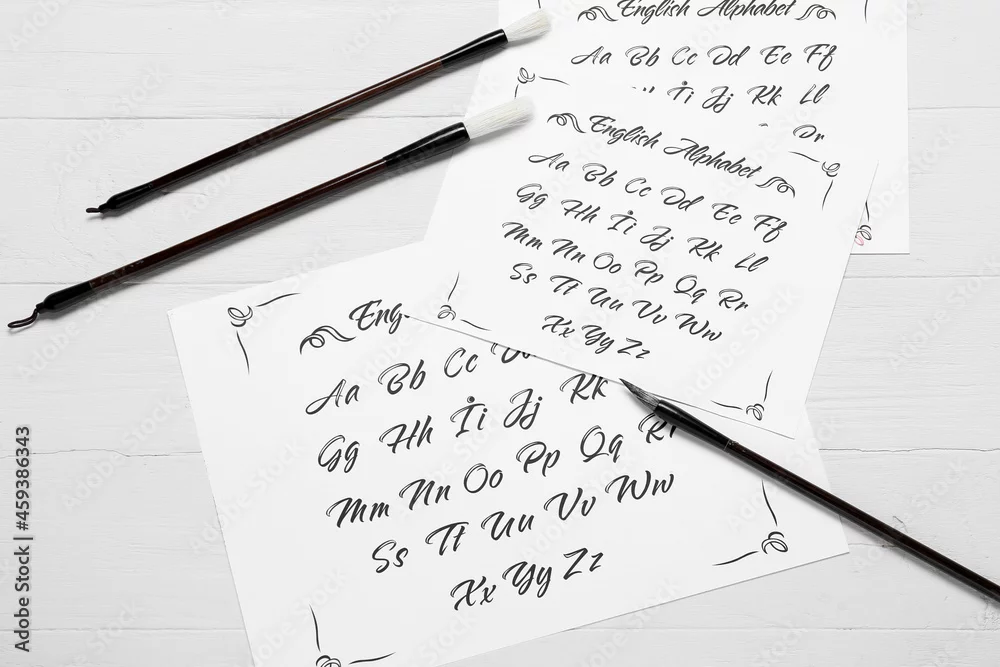 English Alphabet
Aa Bb Cc Dd Ee Ff
İi Jj Kk Ll
Rr
English Alphabet
Aa Bb Cc Dd Ee Ff
Gg Hh İi Jj Kk Ll
Mm Nn Oo Pp Qq Rr
Ss Tt Uu Vv Ww
Xx Yy Zz
Eng
Aa Bb Cc
Gg Hh İi Jj Kk
Mm Nn Oo Pp Qq Rr
Ss Tt Uu Vv Ww
Xx Yy Zz
Adobe Stock | #459386343